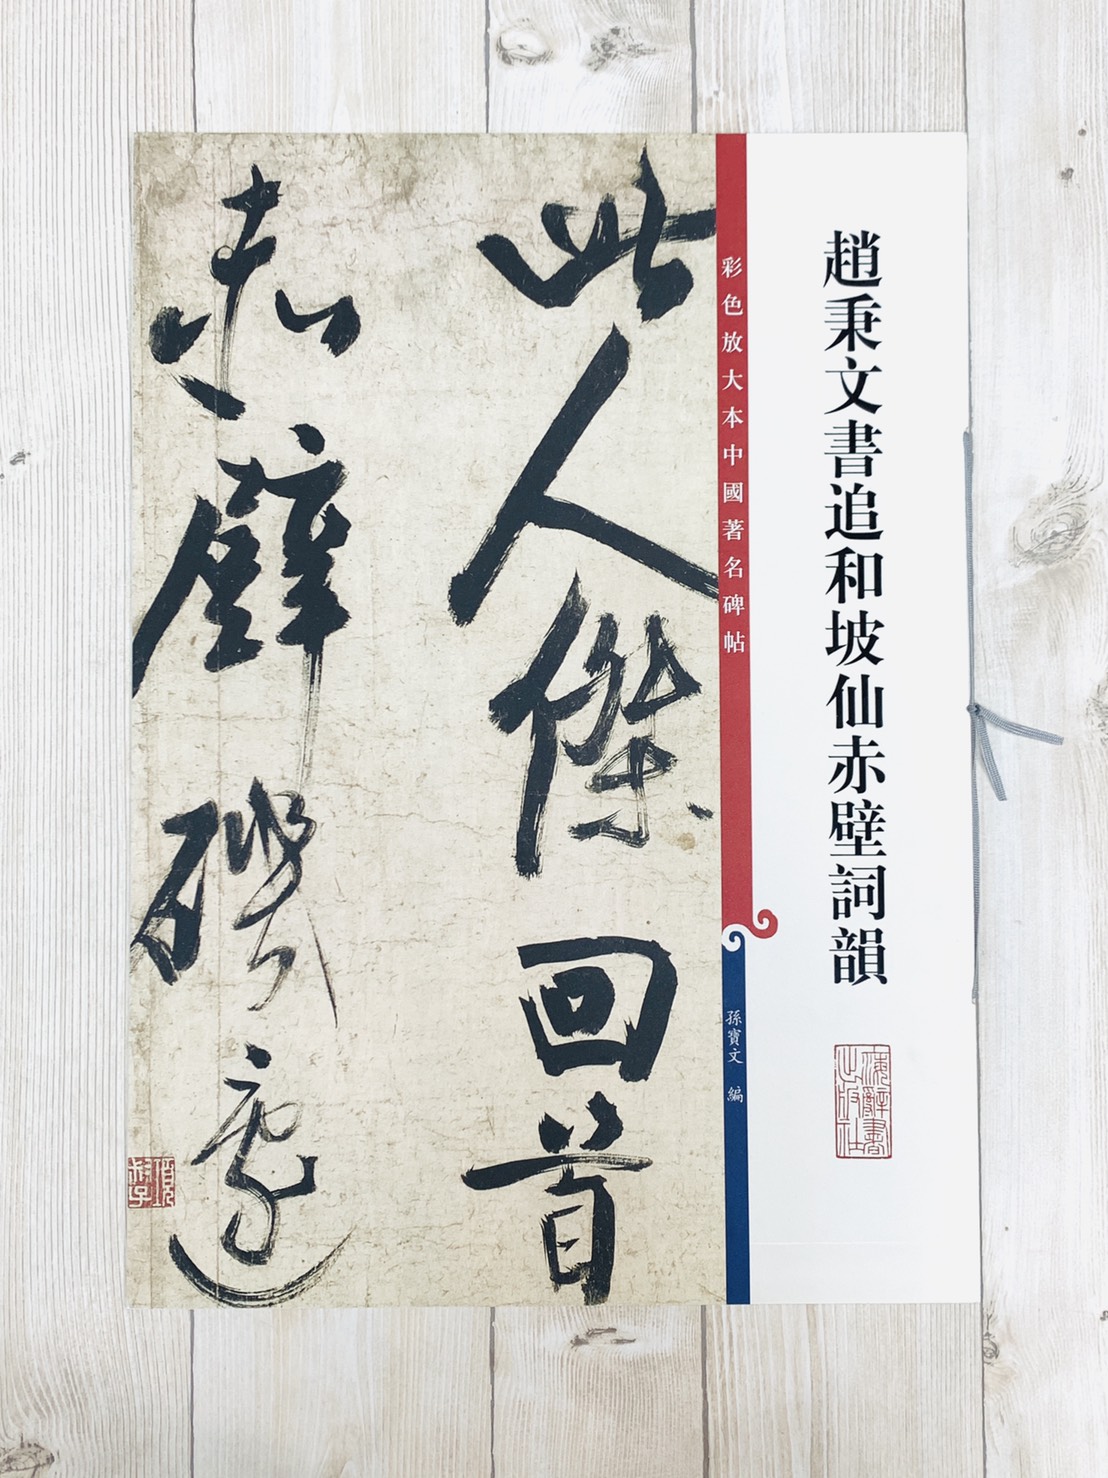 趙秉文書追和坡仙赤壁詞韻
海辭書
出版社
彩色放大本中國著名碑帖
孫寶文 編
此人傑回首
赤壁磯邊
項
子